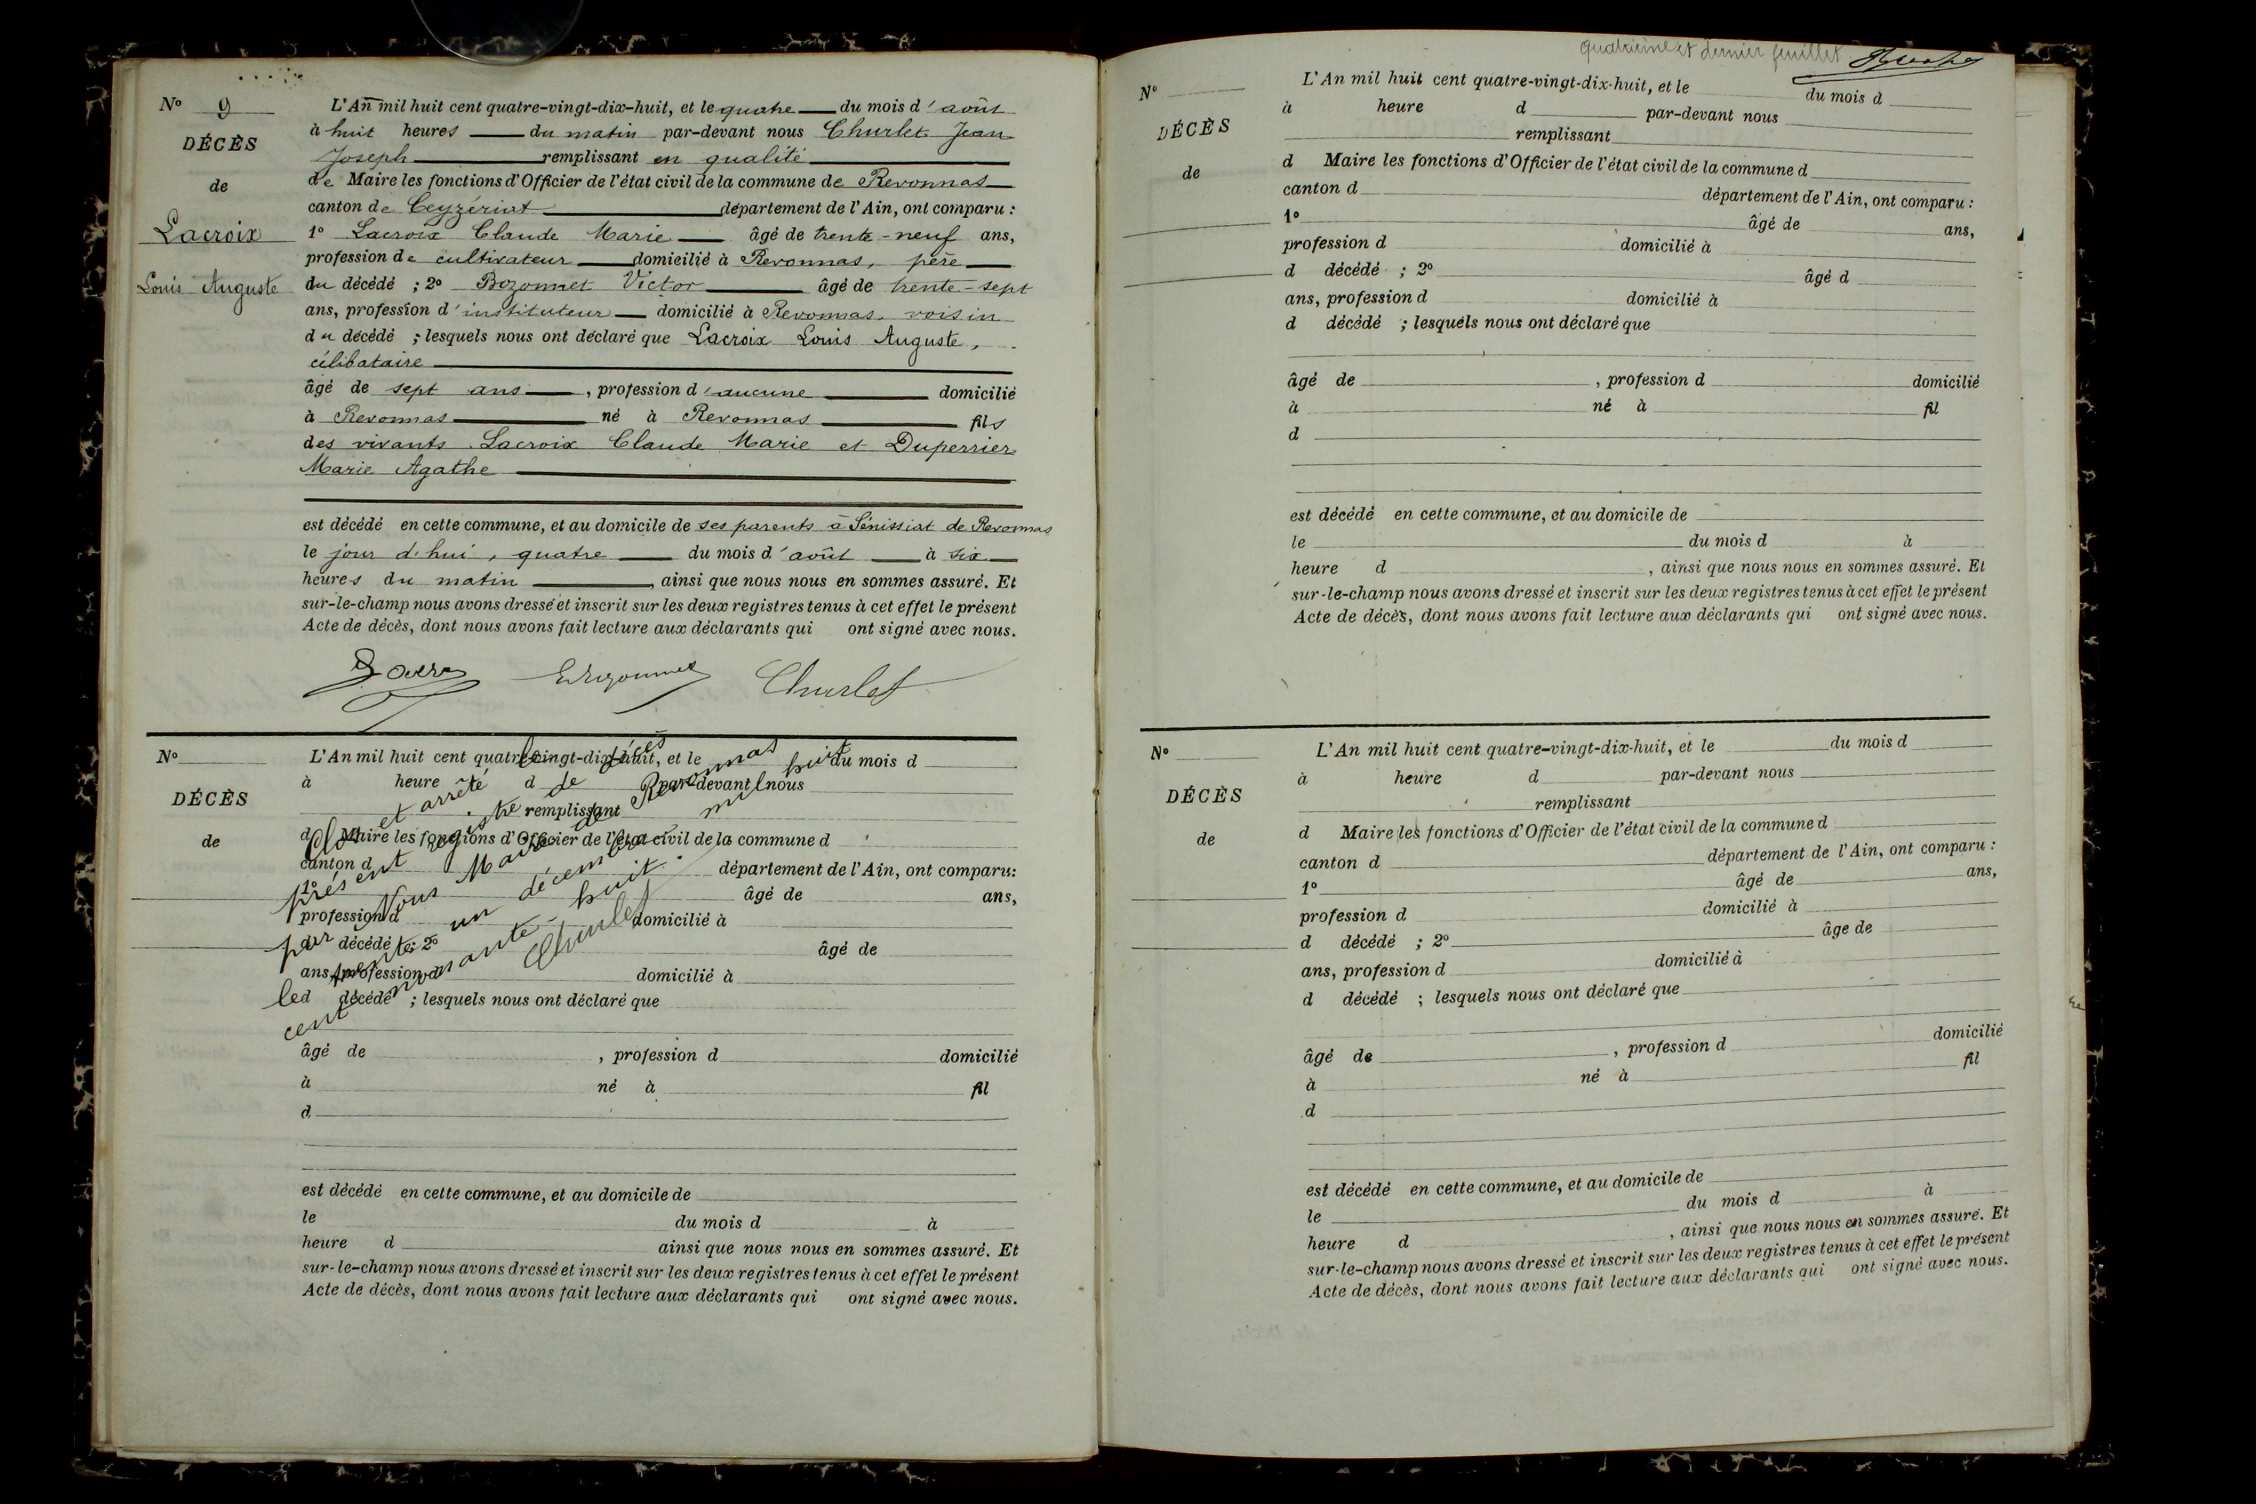 N° 9
DÉCÈS
de
Lacroix
Louis Auguste
L'An mil huit cent quatre-vingt-dix-huit, et le quatre du mois d'août
à huit heures du matin par-devant nous Churlet Jean
Joseph remplissant en qualité
de Maire les fonctions d'Officier de l'état civil de la commune de Revonnas
canton de Ceyzériat département de l'Ain, ont comparu :
1° Lacroix Claude Marie âgé de trente-neuf ans,
profession de cultivateur domicilié à Revonnas, père
du décédé ; 2° Bozonnet Victor âgé de trente-sept
ans, profession d'instituteur domicilié à Revonnas, voisin
du décédé ; lesquels nous ont déclaré que Lacroix Louis Auguste,
célibataire
âgé de sept ans, profession d'aucune domicilié
à Revonnas né à Revonnas fils
des vivants Lacroix Claude Marie et Duperrier
Marie Agathe
est décédé en cette commune, et au domicile de ses parents à Sénissiat de Revonnas
le jour d'hui, quatre du mois d'août à six
heures du matin, ainsi que nous nous en sommes assuré. Et
sur-le-champ nous avons dressé et inscrit sur les deux registres tenus à cet effet le présent
Acte de décès, dont nous avons fait lecture aux déclarants qui ont signé avec nous.
Churlet
N°
DÉCÈS
de
L'An mil huit cent quatre-vingt-dix-huit, et le du mois d
à heure d par-devant nous
remplissant
d Maire les fonctions d'Officier de l'état civil de la commune d
canton d département de l'Ain, ont comparu:
1° âgé de ans,
profession d domicilié à
d décédé ; 2° âgé de
ans, profession d domicilié à
d décédé ; lesquels nous ont déclaré que
âgé de , profession d domicilié
à né à fil
d
est décédé en cette commune, et au domicile de
le du mois d à
heure d ainsi que nous nous en sommes assuré. Et
sur-le-champ nous avons dressé et inscrit sur les deux registres tenus à cet effet le présent
Acte de décès, dont nous avons fait lecture aux déclarants qui ont signé avec nous.
Clos et arrêté le
présent registre de décès
par Nous Maire de Revonnas
le trente un décembre mil huit
cent nonante-huit.
Churlet
quatrième et dernier feuillet
N°
DÉCÈS
de
L'An mil huit cent quatre-vingt-dix-huit, et le du mois d
à heure d par-devant nous
remplissant
d Maire les fonctions d'Officier de l'état civil de la commune d
canton d département de l'Ain, ont comparu :
1° âgé de ans,
profession d domicilié à
d décédé ; 2° âgé d
ans, profession d domicilié à
d décédé ; lesquels nous ont déclaré que
âgé de , profession d domicilié
à né à fil
d
est décédé en cette commune, et au domicile de
le du mois d à
heure d , ainsi que nous nous en sommes assuré. Et
sur-le-champ nous avons dressé et inscrit sur les deux registres tenus à cet effet le présent
Acte de décès, dont nous avons fait lecture aux déclarants qui ont signé avec nous.
N°
DÉCÈS
de
L'An mil huit cent quatre-vingt-dix-huit, et le du mois d
à heure d par-devant nous
remplissant
d Maire les fonctions d'Officier de l'état civil de la commune d
canton d département de l'Ain, ont comparu :
1° âgé de ans,
profession d domicilié à
d décédé ; 2° âge de
ans, profession d domicilié à
d décédé ; lesquels nous ont déclaré que
âgé de , profession d domicilié
à né à fil
d
est décédé en cette commune, et au domicile de
le du mois d à
heure d , ainsi que nous nous en sommes assuré. Et
sur-le-champ nous avons dressé et inscrit sur les deux registres tenus à cet effet le présent
Acte de décès, dont nous avons fait lecture aux déclarants qui ont signé avec nous.